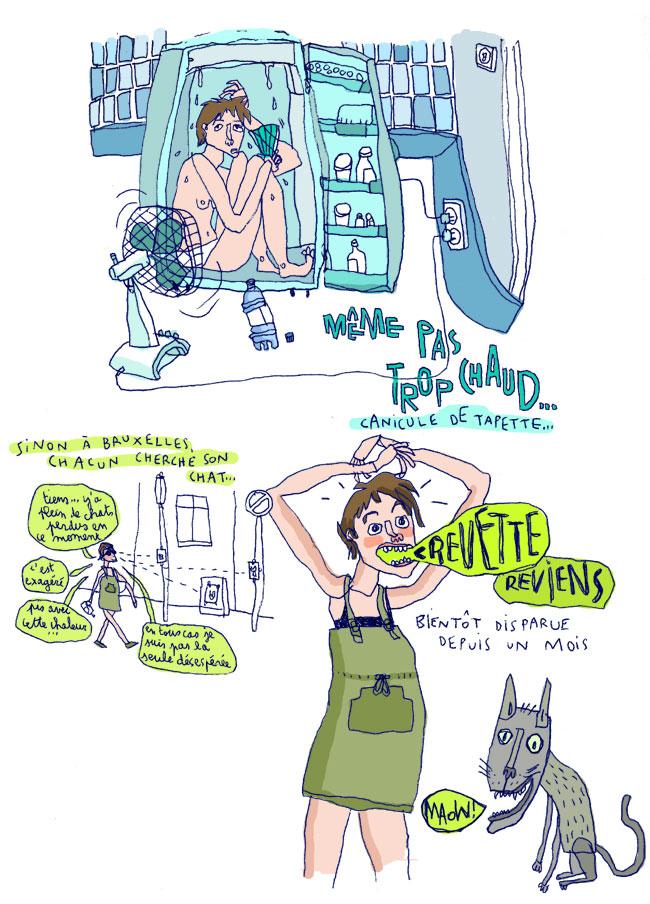 MÊME PAS
TROP CHAUD...
CANICULE DE TAPETTE...
SINON À BRUXELLES,
CHACUN CHERCHE SON
CHAT...
tiens... y'a
plein de chats
perdus en
ce moment
c'est
exagéré
pis avec
cette chaleur
...
en tous cas je
suis pas la
seule désespérée
CREVETTE
REVIENS
BIENTÔT DISPARUE
DEPUIS UN MOIS
MAOW!